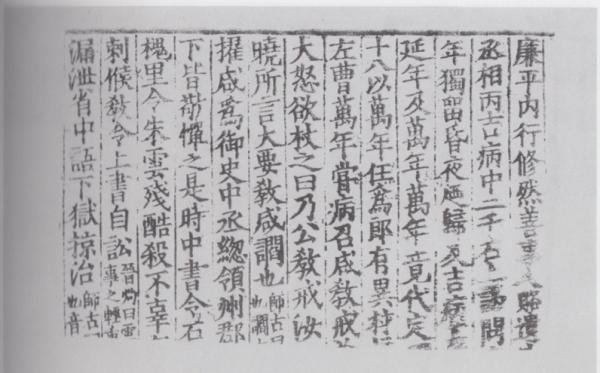 廉平内行修然善事人賂遺
丞相丙吉病中二千石上謁問
年獨留昏夜廼歸及吉病甚
延年及萬年萬年竟代定
十八以萬年任爲郎有異材
左曹萬年嘗病召咸教戒
大怒欲杖之曰乃公教戒汝
曉所言大要教咸讇也師古曰也讇
擢咸爲御史中丞緫領州郡
下皆敬憚之是時中書令石
槐里令朱雲殘酷殺不辜
刺候教令上書自訟晉灼曰雲事之轉
漏泄省中語下獄掠治師古也音